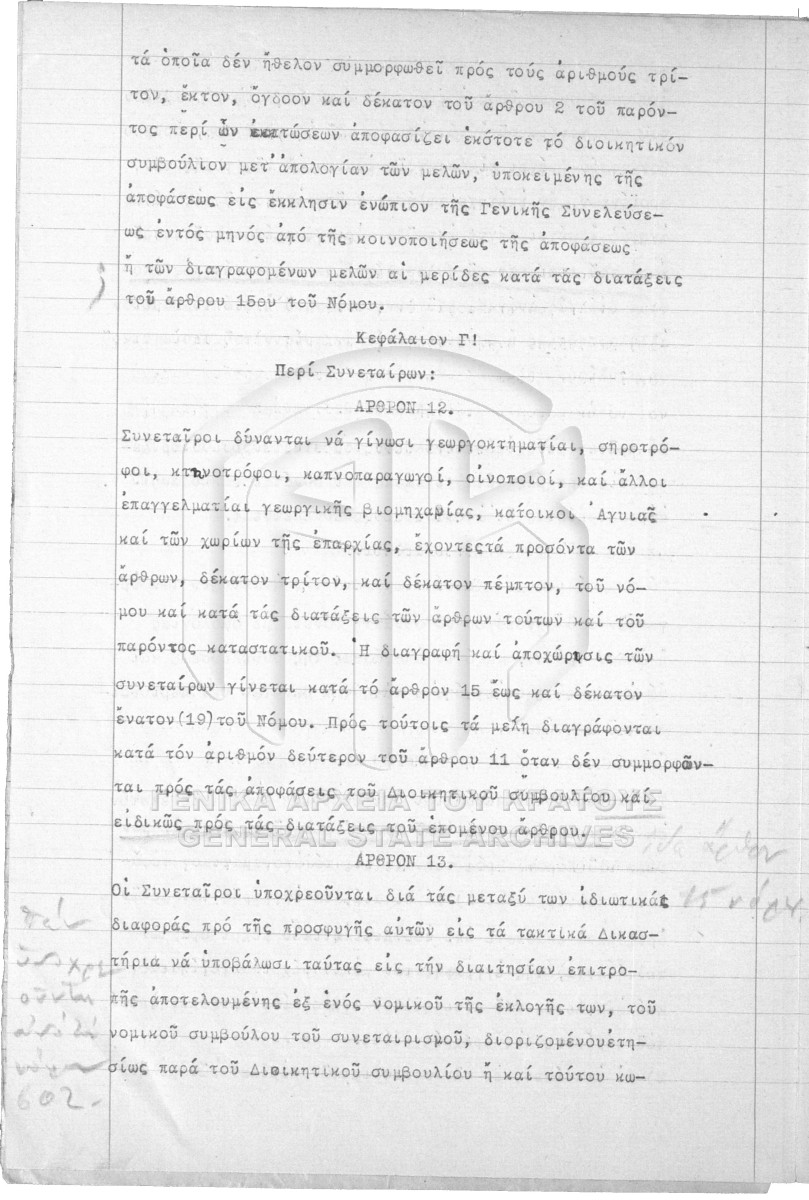 τά ὁποῖα δέν ἤθελον συμμορφωθεῖ πρός τούς ἀριθμούς τρί-
τον, ἕκτον, ὄγδοον καί δέκατον τοῦ ἄρθρου 2 τοῦ παρόν-
τος περί ὧν ἐκπτώσεων ἀποφασίζει ἑκάστοτε τό διοικητικόν
συμβούλιον μετ' ἀπολογίαν τῶν μελῶν, ὑποκειμένης τῆς
ἀποφάσεως εἰς ἔκκλησιν ἐνώπιον τῆς Γενικῆς Συνελεύσε-
ως ἐντός μηνός ἀπό τῆς κοινοποιήσεως τῆς ἀποφάσεως
ἤ τῶν διαγραφομένων μελῶν αἱ μερίδες κατά τάς διατάξεις
τοῦ ἄρθρου 15ου τοῦ Νόμου.
Κεφάλαιον Γ!
Περί Συνεταίρων:
ΑΡΘΡΟΝ 12.
Συνεταῖροι δύνανται νά γίνωσι γεωργοκτηματίαι, σηροτρό-
φοι, κτηνοτρόφοι, καπνοπαραγωγοί, οἰνοποιοί, καί ἄλλοι
ἐπαγγελματίαι γεωργικῆς βιομηχανίας, κάτοικοι Ἁγυιᾶς
καί τῶν χωρίων τῆς ἐπαρχίας, ἔχοντεςτά προσόντα τῶν
ἄρθρων, δέκατον τρίτον, καί δέκατον πέμπτον, τοῦ νό-
μου καί κατά τάς διατάξεις τῶν ἄρθρων τούτων καί τοῦ
παρόντος καταστατικοῦ. Ἡ διαγραφή καί ἀποχώρησις τῶν
συνεταίρων γίνεται κατά τό ἄρθρον 15 ἕως καί δέκατον
ἔνατον(19)τοῦ Νόμου. Πρός τούτοις τά μέλη διαγράφονται
κατά τόν ἀριθμόν δεύτερον τοῦ ἄρθρου 11 ὅταν δέν συμμορφῶν-
ται πρός τάς ἀποφάσεις τοῦ Διοικητικοῦ συμβουλίου καί
εἰδικῶς πρός τάς διατάξεις τοῦ ἑπομένου ἄρθρου.
ΓΕΝΙΚΑ ΑΡΧΕΙΑ ΤΟΥ ΚΡΑΤΟΥΣ
GENERAL STATE ARCHIVES
ἄρθρον
15 νόμου
ΑΡΘΡΟΝ 13.
Οἱ Συνεταῖροι ὑποχρεοῦνται διά τάς μεταξύ των ἰδιωτικάς
διαφοράς πρό τῆς προσφυγῆς αὐτῶν εἰς τά τακτικά Δικασ-
τήρια νά ὑποβάλωσι ταύτας εἰς τήν διαιτησίαν ἐπιτρο-
πῆς ἀποτελουμένης ἐξ ἑνός νομικοῦ τῆς ἐκλογῆς των, τοῦ
νομικοῦ συμβούλου τοῦ συνεταιρισμοῦ, διοριζομένουἐτη-
σίως παρά τοῦ Διοικητικοῦ συμβουλίου ἤ καί τούτου κω-
ὑποχρε
οῦνται
602.-